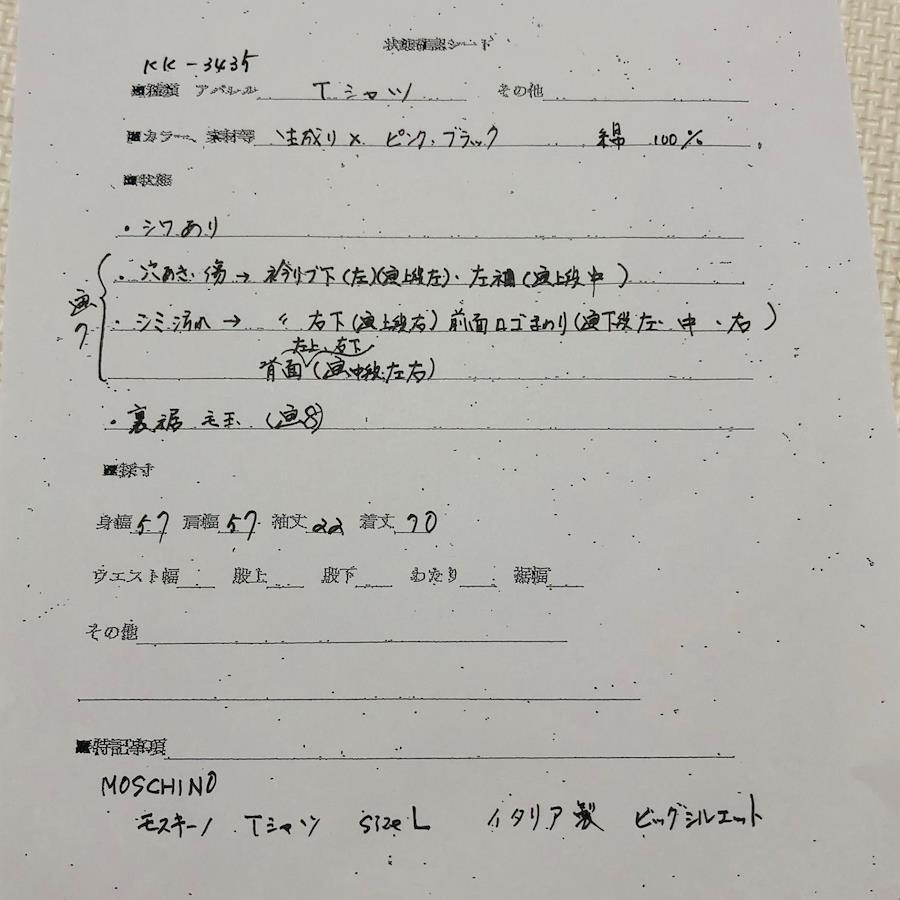 状態確認シート
KK-3435
■種類 アパレル Tシャツ その他
■カラー、素材等 生成り× ピンク・ブラック 綿 100%
■状態
・シワあり
・穴あき 傷→ 衿リブ下(左)(画上段左)・左袖(画上段中)
画7
・シミ汚れ → 〃 右下(画上段右) 前面ロゴまわり(画下段 左・中・右)
左上、右下
背面(画中段左右)
・裏裾 毛玉 (画8)
■採寸
身幅57 肩幅57 袖丈22 着丈70
ウエスト幅 股上 股下 わたり 裾幅
その他
■特記事項
MOSCHINO
モスキーノ Tシャツ size L イタリア製 ビッグシルエット